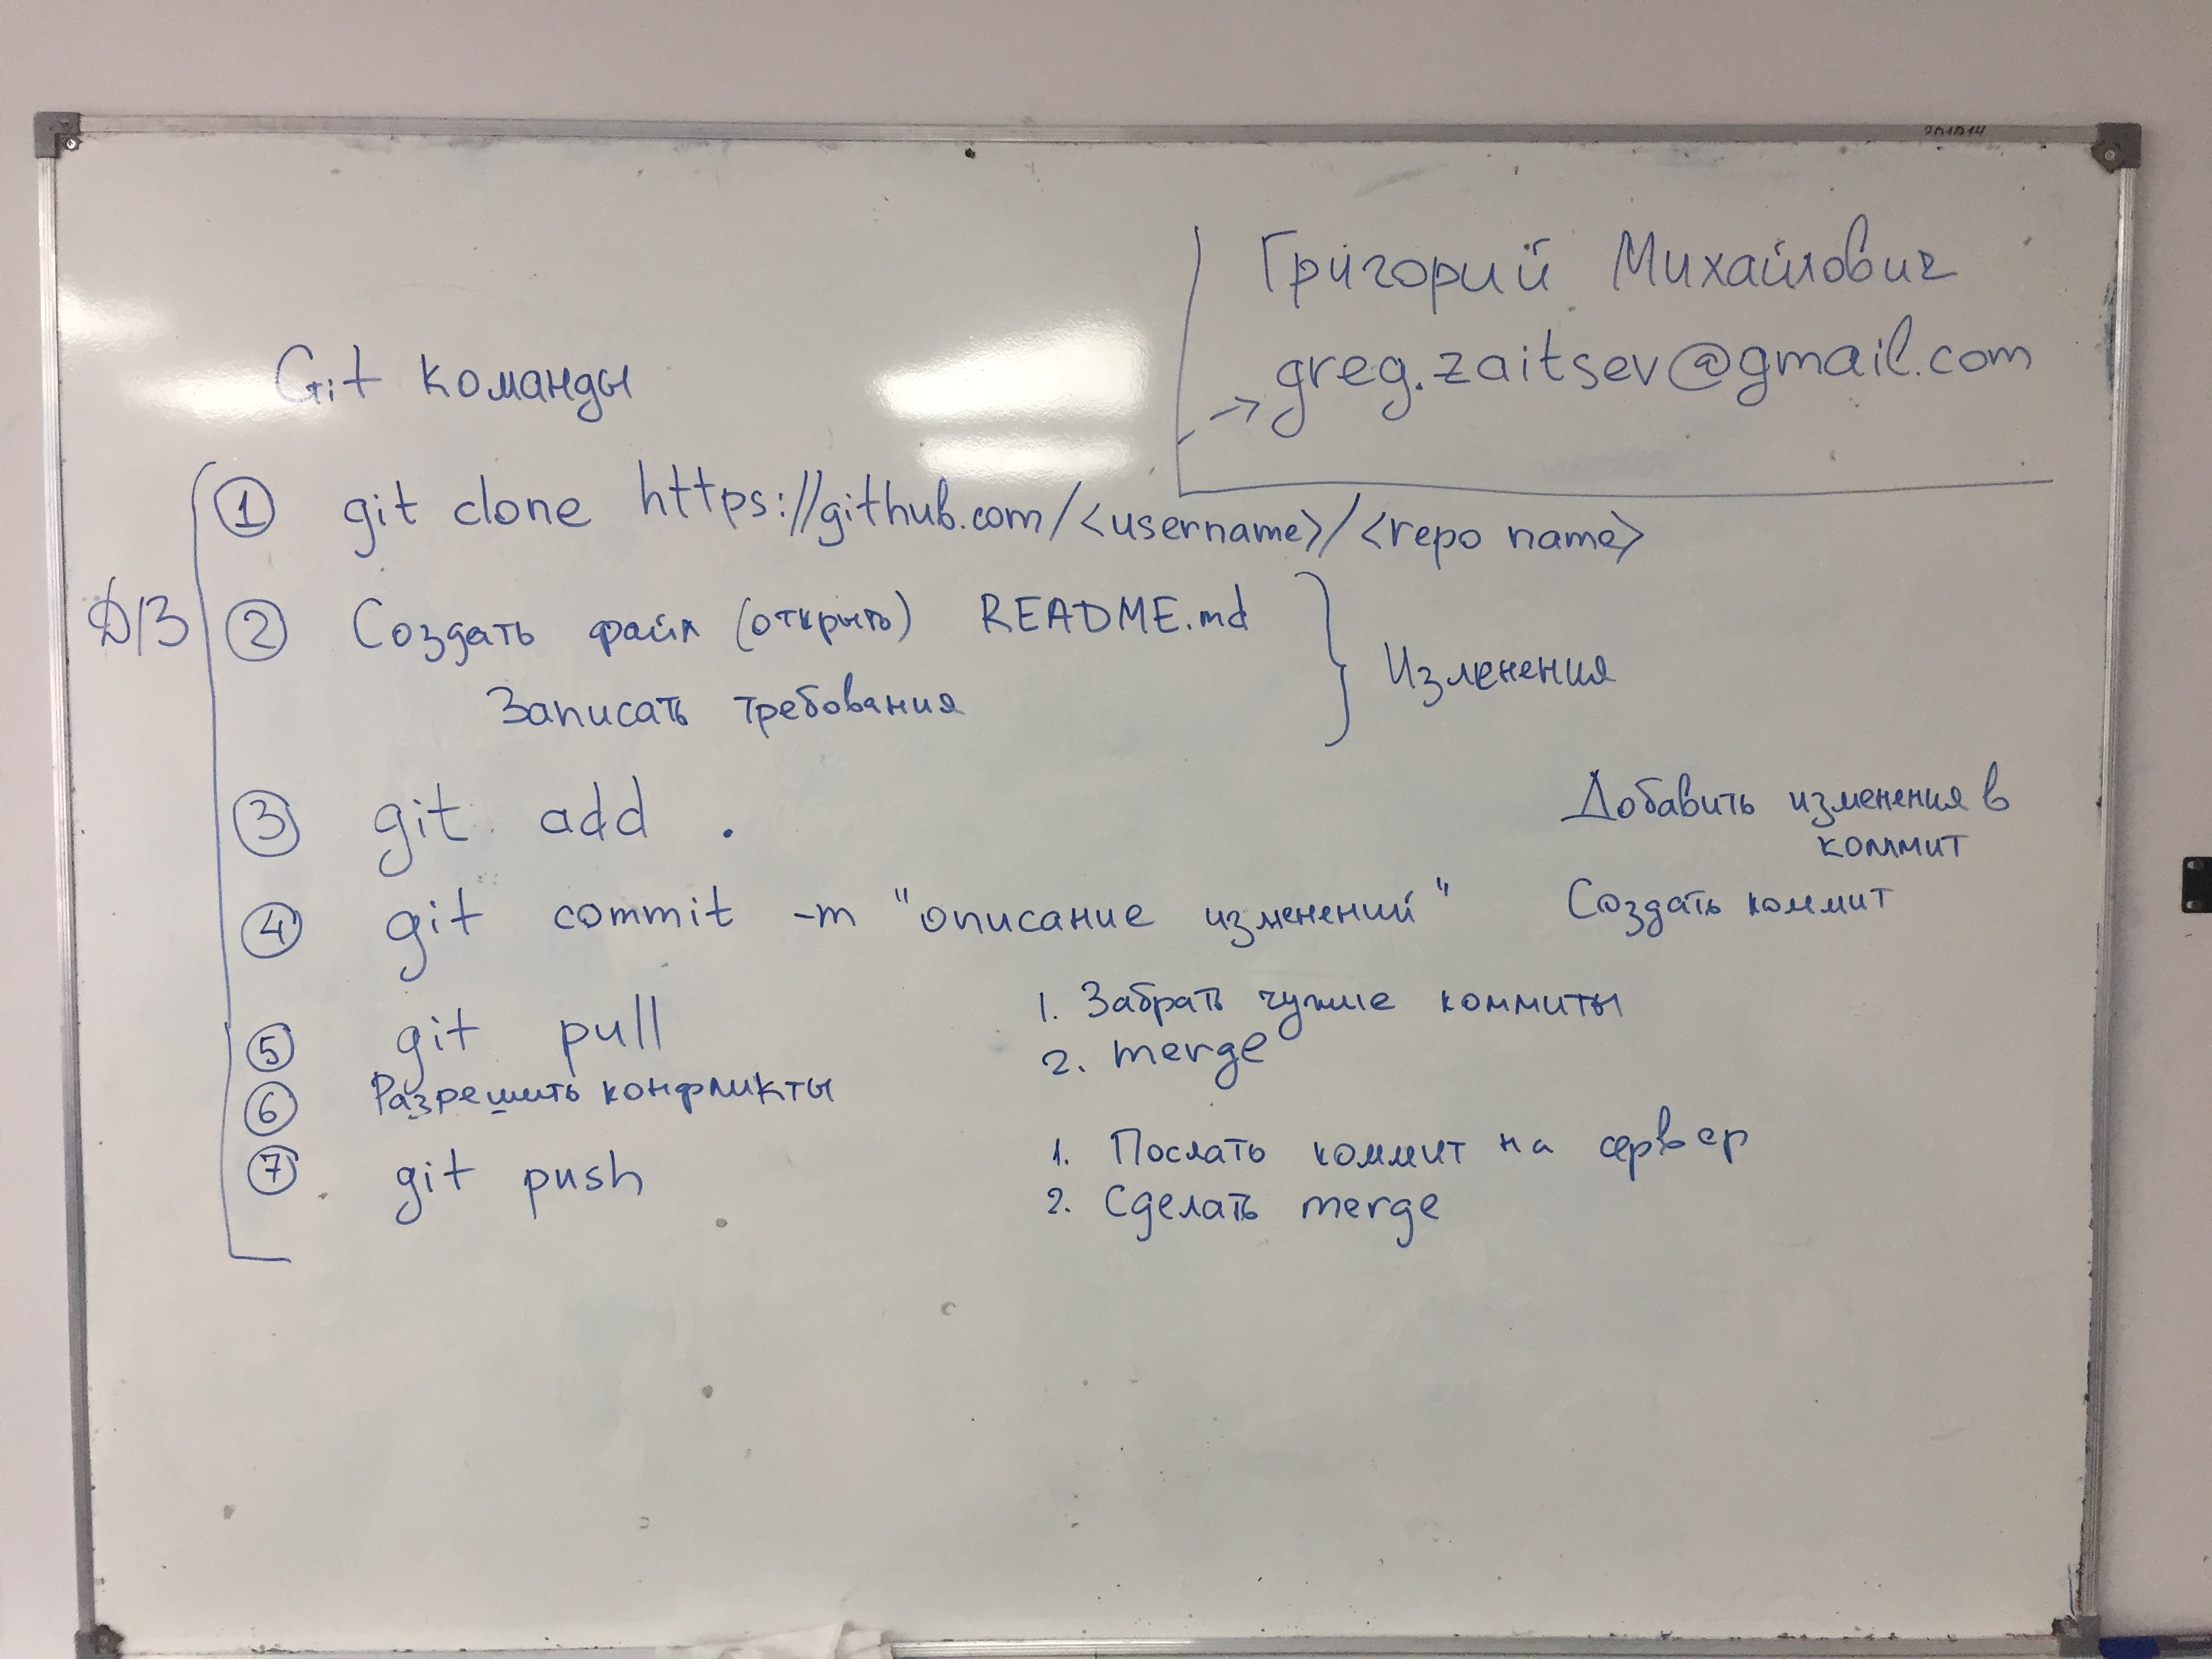 Григорий Михайлович
→ greg.zaitsev@gmail.com
Git команды
Д/З
1 git clone https://github.com/<username>/<repo name>
2 Создать файл (открыть) README.md
Записать требования
Изменения
3 git add .
Добавить изменения в
коммит
4 git commit -m "описание изменений" Создать коммит
5 git pull
1. Забрать чужие коммиты
2. merge
6 Разрешить конфликты
7 git push
1. Послать коммит на сервер
2. Сделать merge